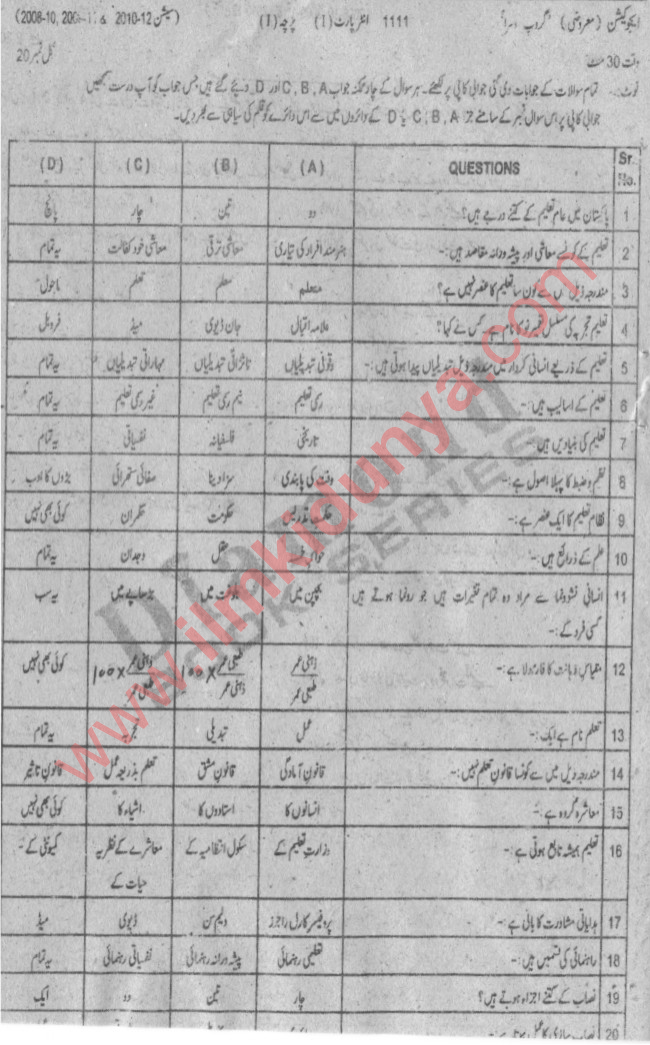 ایجوکیشن (معروضی) گروپ 1111 انٹر پارٹ (I) پرچہ (I) سیشن 2010-12 &
وقت 30 منٹ کل نمبر 20
نوٹ:۔ تمام سوالات کے جوابات دی گئی جوابی کاپی پر لکھئے۔ ہر سوال کے چار ممکنہ جواب A، B، C اور D دیئے گئے ہیں جس جواب کو آپ درست سمجھیں
جوابی کاپی پر اس سوال نمبر کے سامنے A، B، C یا D کے دائروں میں سے اس دائرے کو قلم کی سیاہی سے بھر دیں۔
Sr. No. QUESTIONS (A) (B) (C) (D)
1 پاکستان میں عام تعلیم کے کتنے درجے ہیں؟ دو تین چار پانچ
2 تعلیم کے کونسے معاشی اور پیشہ ورانہ مقاصد ہیں:۔ ہنر مند افراد کی تیاری معاشی ترقی معاشی خود کفالت یہ تمام
3 مندرجہ ذیل میں سے کون سا تعلیم کا عنصر نہیں ہے؟ متعلم معلم تعلم ماحول
4 تعلیم تجربہ کی مسلسل تعمیر نو کا نام ہے۔ کس نے کہا؟ علامہ اقبال جان ڈیوی میڈ فروبل
5 تعلیم کے ذریعے انسانی کردار میں مندرجہ ذیل تبدیلیاں پیدا ہوتی ہیں:۔ وقوفی تبدیلیاں تاثراتی تبدیلیاں مہاراتی تبدیلیاں یہ تمام
6 تعلیم کے اسالیب ہیں:۔ رسمی تعلیم نیم رسمی تعلیم غیر رسمی تعلیم یہ تمام
7 تعلیم کی بنیادیں ہیں تاریخی فلسفیانہ نفسیاتی یہ تمام
8 نظم و ضبط کا پہلا اصول ہے:۔ وقت کی پابندی سزا دینا صفائی ستھرائی بڑوں کا ادب
9 نظام تعلیم کا ایک عنصر ہے:۔ حکمت تدریس حکومت نگران کوئی بھی نہیں
10 علم کے ذرائع ہیں:۔ حواس خمسہ عقل وجدان یہ تمام
11 انسانی نشوونما سے مراد وہ تمام تغیرات ہیں جو رونما ہوتے ہیں
کسی فرد کے:۔ بچپن میں بلوغت میں بڑھاپے میں یہ سب
12 مقیاس ذہانت کا فارمولا ہے:۔ ذہنی عمر/طبعی عمر طبعی عمر/ذہنی عمر × ۱۰۰ ذہنی عمر/طبعی عمر × ۱۰۰ کوئی بھی نہیں
13 تعلم نام ہے ایک:۔ عمل تبدیلی تجربہ یہ تمام
14 مندرجہ ذیل میں سے کونسا قانون تعلم نہیں:۔ قانون آمادگی قانون مشق تعلم بذریعہ عمل قانون تاثیر
15 معاشرہ گروہ ہے:۔ انسانوں کا استادوں کا اشیاء کا کوئی بھی نہیں
16 تعلیم ہمیشہ تابع ہوتی ہے:۔ وزارت تعلیم کے سکول انتظامیہ کے معاشرے کے نظریہ حیات کے کمیونٹی کے۔
17 ہدایاتی مشاورت کا بانی ہے:۔ پروفیسر کارل راجرز ولیم سن ڈیوی میڈ
18 راہنمائی کی قسمیں ہیں:۔ تعلیمی رہنمائی پیشہ ورانہ رہنمائی نفسیاتی رہنمائی یہ تمام
19 نصاب کے کتنے اجزاء ہوتے ہیں؟ چار تین دو ایک
20
www.ilmkidunya.com
Diamond
BOOK SERIES